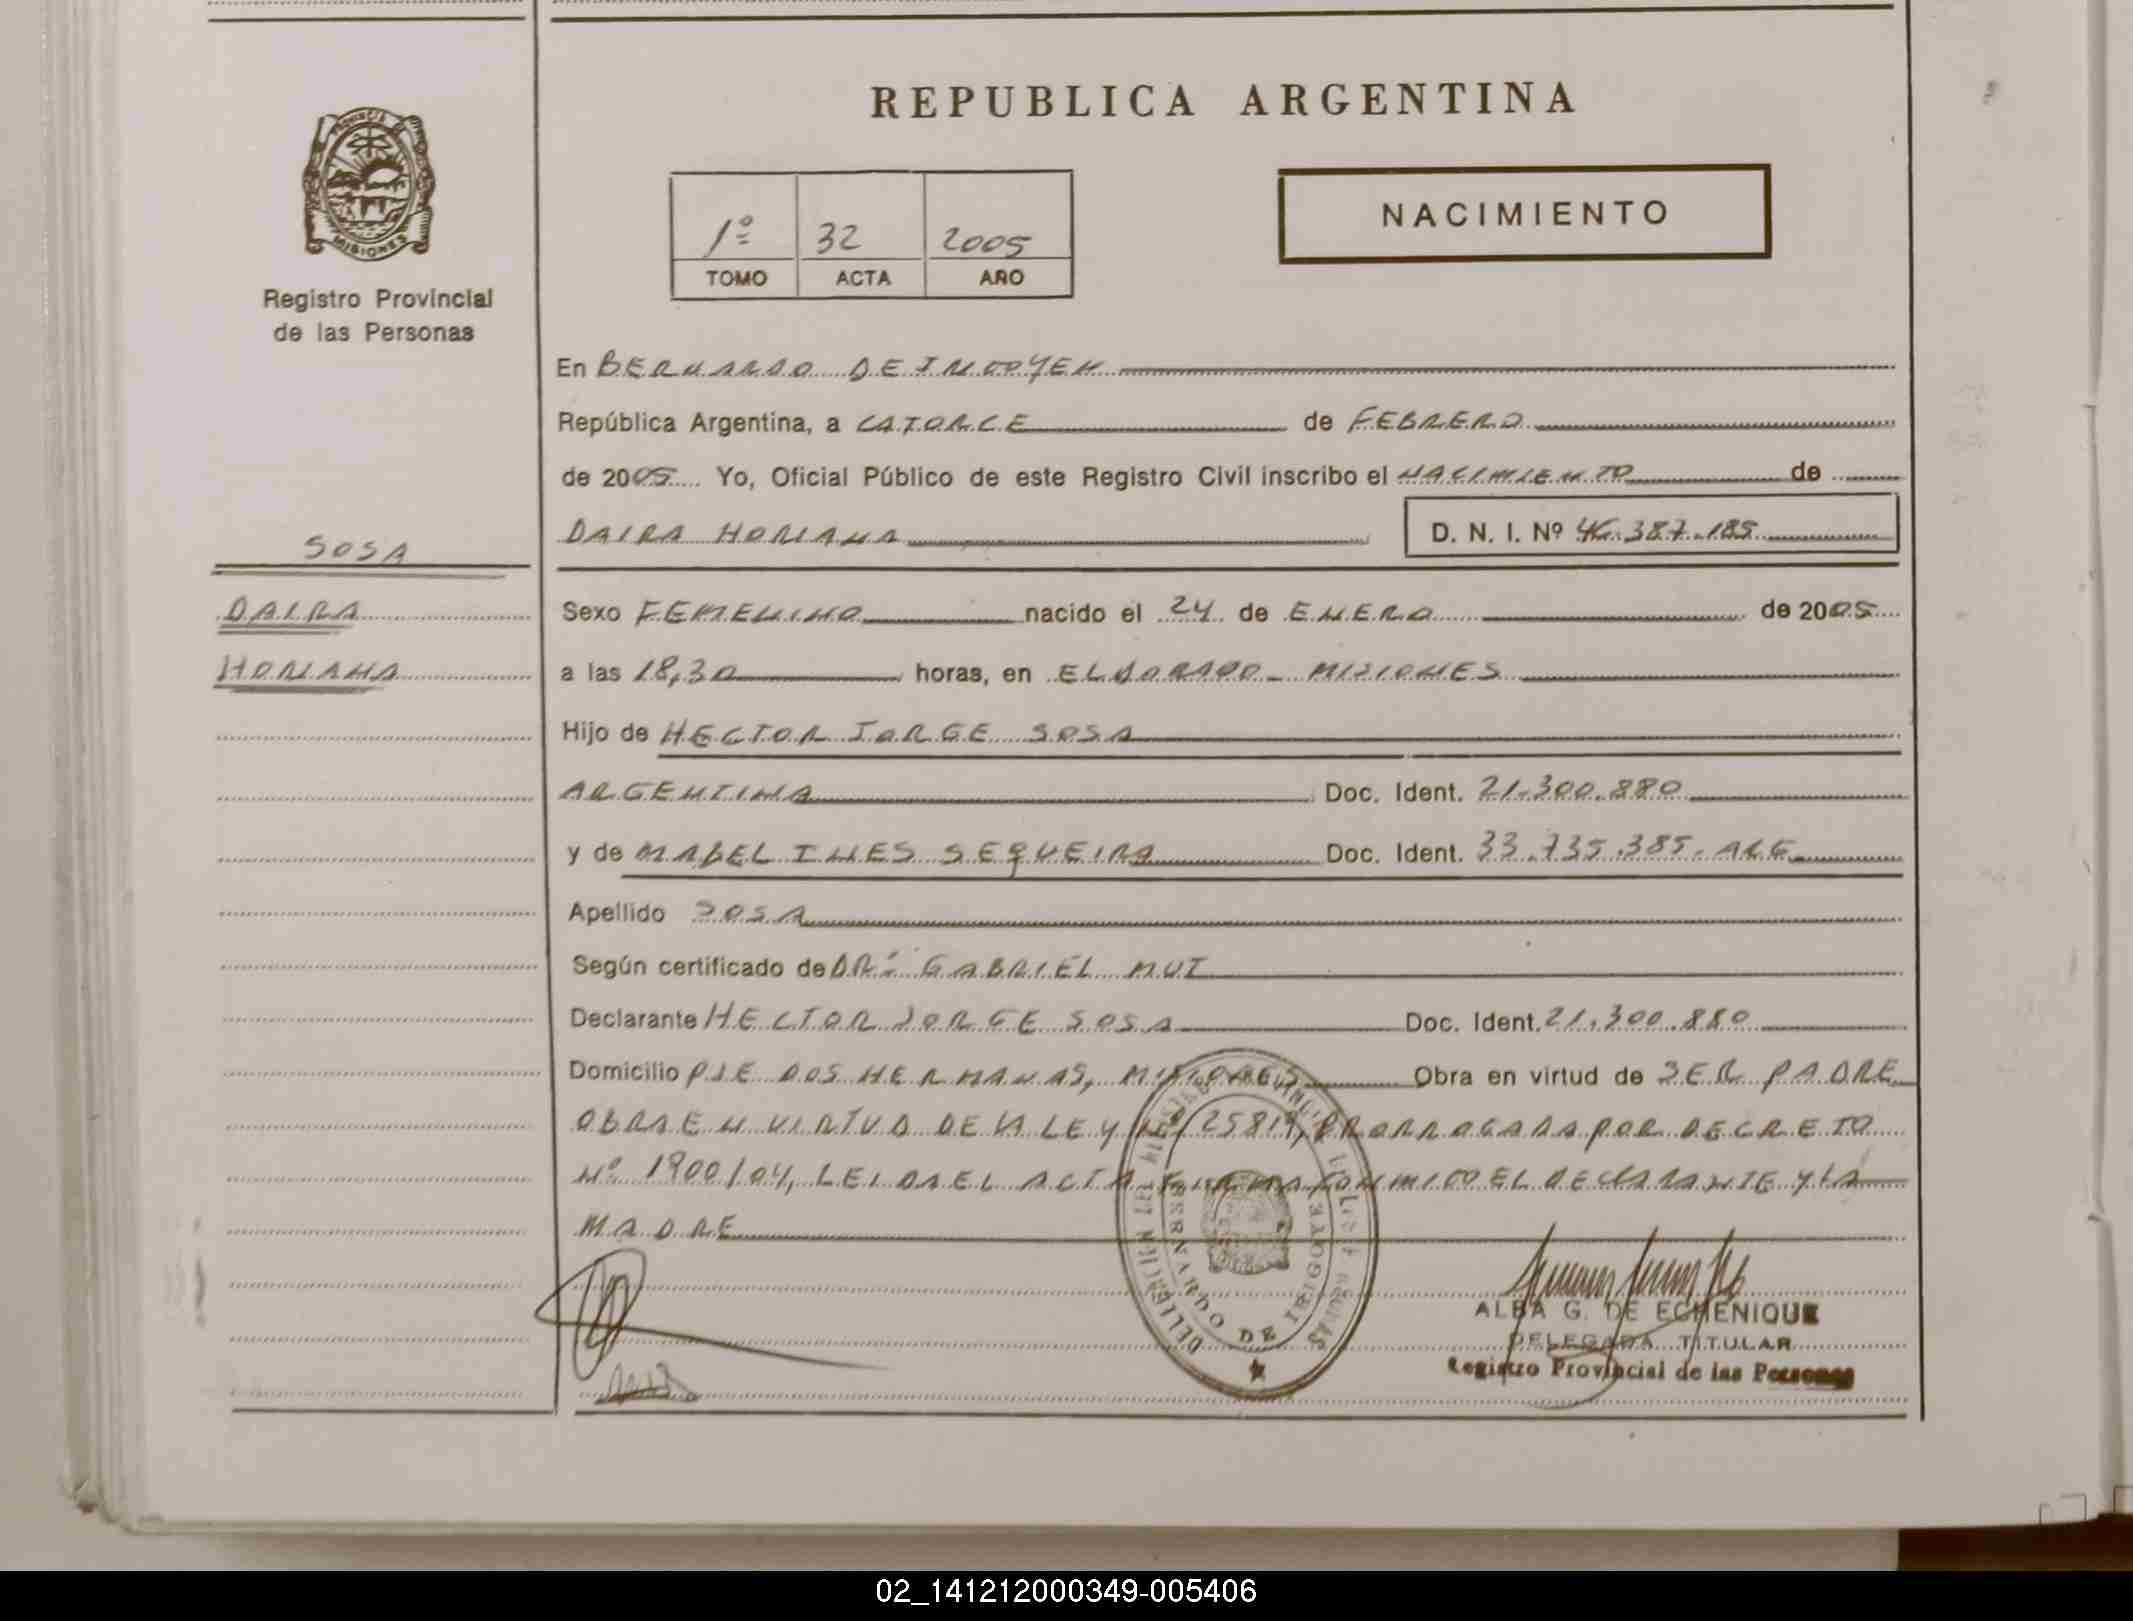 REPUBLICA ARGENTINA
PROVINCIA DE
MISIONES
Registro Provincial
de las Personas
1º 32 2005
TOMO ACTA AÑO
NACIMIENTO
En BERNARDO DE IRIGOYEN
República Argentina, a CATORCE de FEBRERO
de 2005 Yo, Oficial Público de este Registro Civil inscribo el NACIMIENTO de
SOSA
DAIRA HORIANA D. N. I. Nº 46.387.185
DAIRA
HORIANA
Sexo FEMENINO nacido el 24 de ENERO de 2005
a las 18,30 horas, en ELDORADO - MISIONES
Hijo de HECTOR JORGE SOSA
ARGENTINA Doc. Ident. 21.300.880
y de MABEL INES SEQUEIRA Doc. Ident. 33.735.385. ARG.
Apellido SOSA
Según certificado de DR: GABRIEL MUT
Declarante HECTOR JORGE SOSA Doc. Ident. 21.300.880
Domicilio PJE DOS HERMANAS, MISIONES Obra en virtud de SER PADRE
OBRA EN VIRTUD DE LA LEY Nº 25819, PRORROGADA POR DECRETO
Nº 1900/04, LEIDA EL ACTA FIRMA CONMIGO EL DECLARANTE Y LA
MADRE
BERNARDO DE IRIGOYEN
ALBA G. DE ECHENIQUE
DELEGADA TITULAR
Registro Provincial de las Personas
02_141212000349-005406